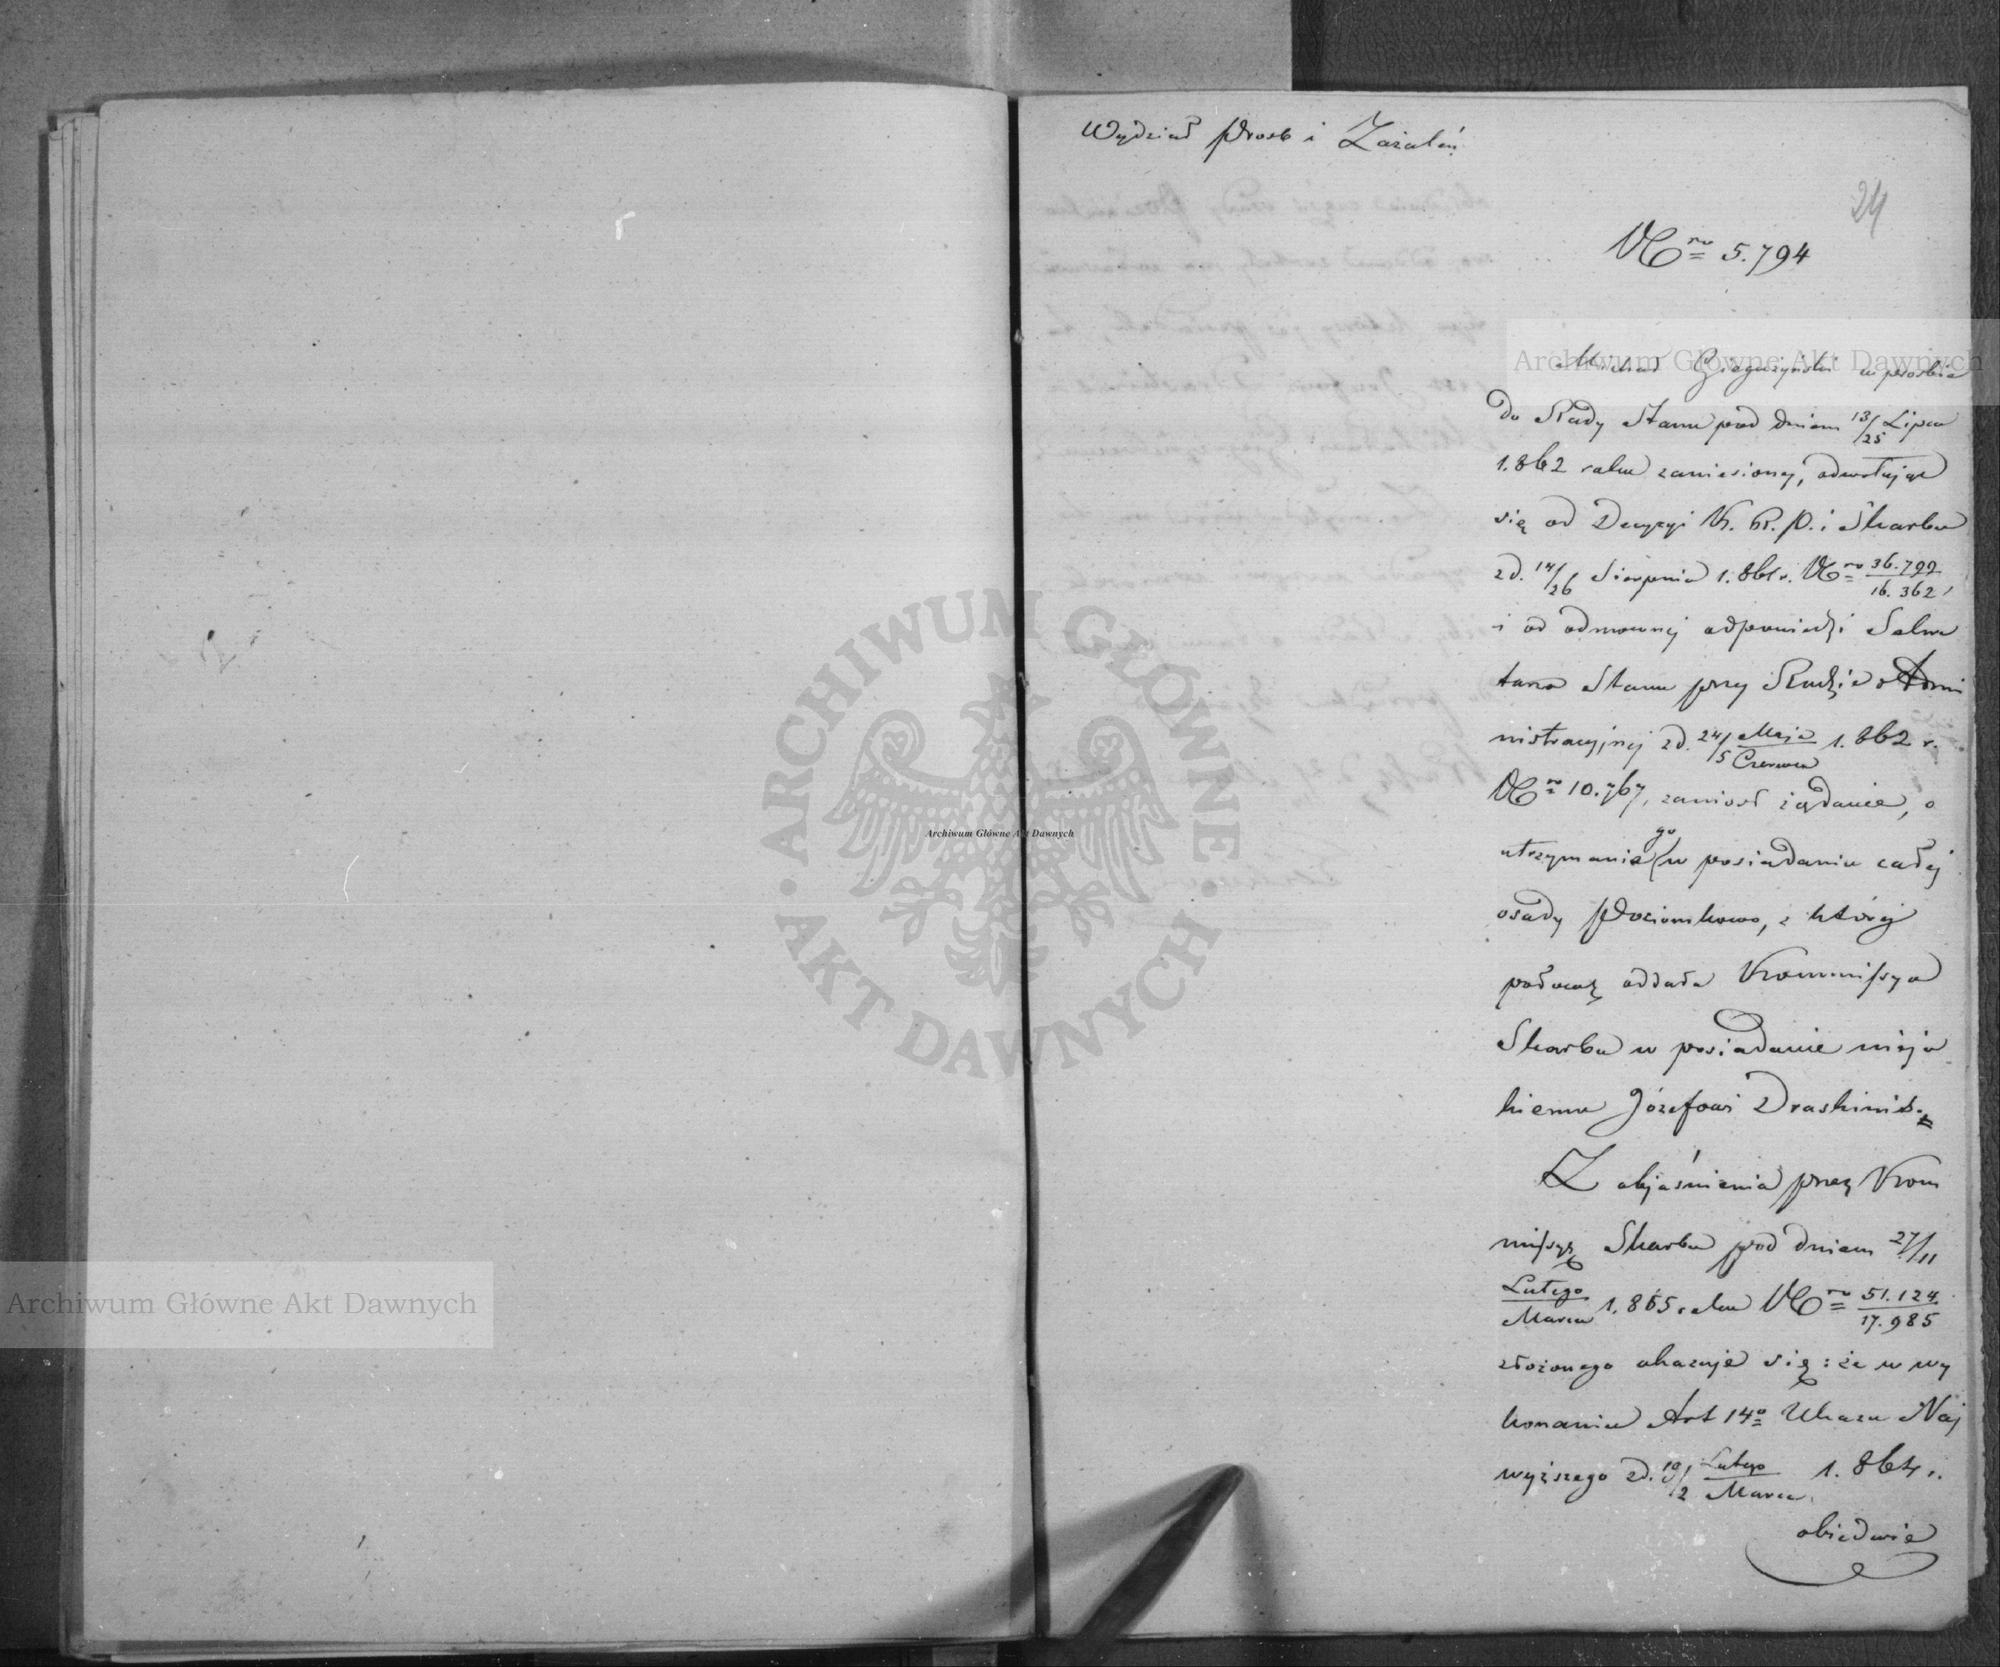 Wydział Prosb i Zażaleń
24
Nro 5.794
Michał w prosbie
do Rady Stanu pod dniem 13/25 Lipca
1.862 roku zaniesionej, odwołując
się od Decyzyi K. R. P. i Skarbu
z d. 14/26 Sierpnia 1.861 r. Nro 36.799/16.362,
i od odmownej odpowiedzi Sekre
tarza Stanu przy Radzie Admi
nistracyjnej z d. 24/5 Maja/Czerwca 1.862 r.
Nro 10.767, zaniósł żądanie, o
utrzymanie go w posiadaniu całej
osady Poziomkowo, z której
połowę oddała Kommissya
Skarbu w posiadanie nieja
kiemu Józefowi Draskinis.
Z objaśnienia przez Kom
missyę Skarbu pod dniem 27/11
Lutego/Marca 1.865 roku Nro 51.124/17.985
złożonego okazuje się: że w wy
konaniu Art 14o Ukazu Naj
wyższego z d. 19/2 Lutego/Marca 1.864 r.
obiedwie
Archiwum Główne Akt Dawnych
Archiwum Główne Akt Dawnych
Archiwum Główne Akt Dawnych
ARCHIWUM GŁÓWNE • AKT DAWNYCH •